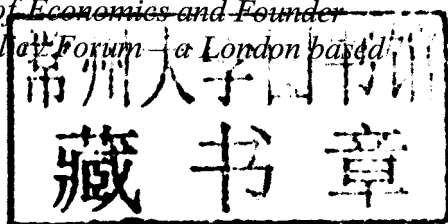 of Economics and Founder
Forum – a London based
常州大学图书馆
藏书章